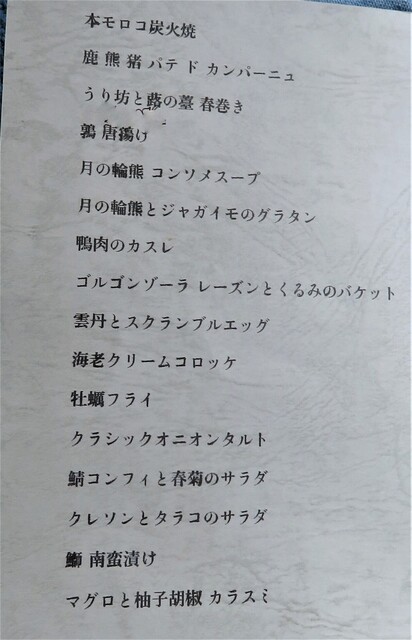 本モロコ炭火焼
鹿 熊 猪 パテ ド カンパーニュ
うり坊と蕗の薹 春巻き
鶉 唐揚げ
月の輪熊 コンソメスープ
月の輪熊とジャガイモのグラタン
鴨肉のカスレ
ゴルゴンゾーラ レーズンとくるみのバケット
雲丹とスクランブルエッグ
海老クリームコロッケ
牡蠣フライ
クラシックオニオンタルト
鯖コンフィと春菊のサラダ
クレソンとタラコのサラダ
鰤 南蛮漬け
マグロと柚子胡椒 カラスミ